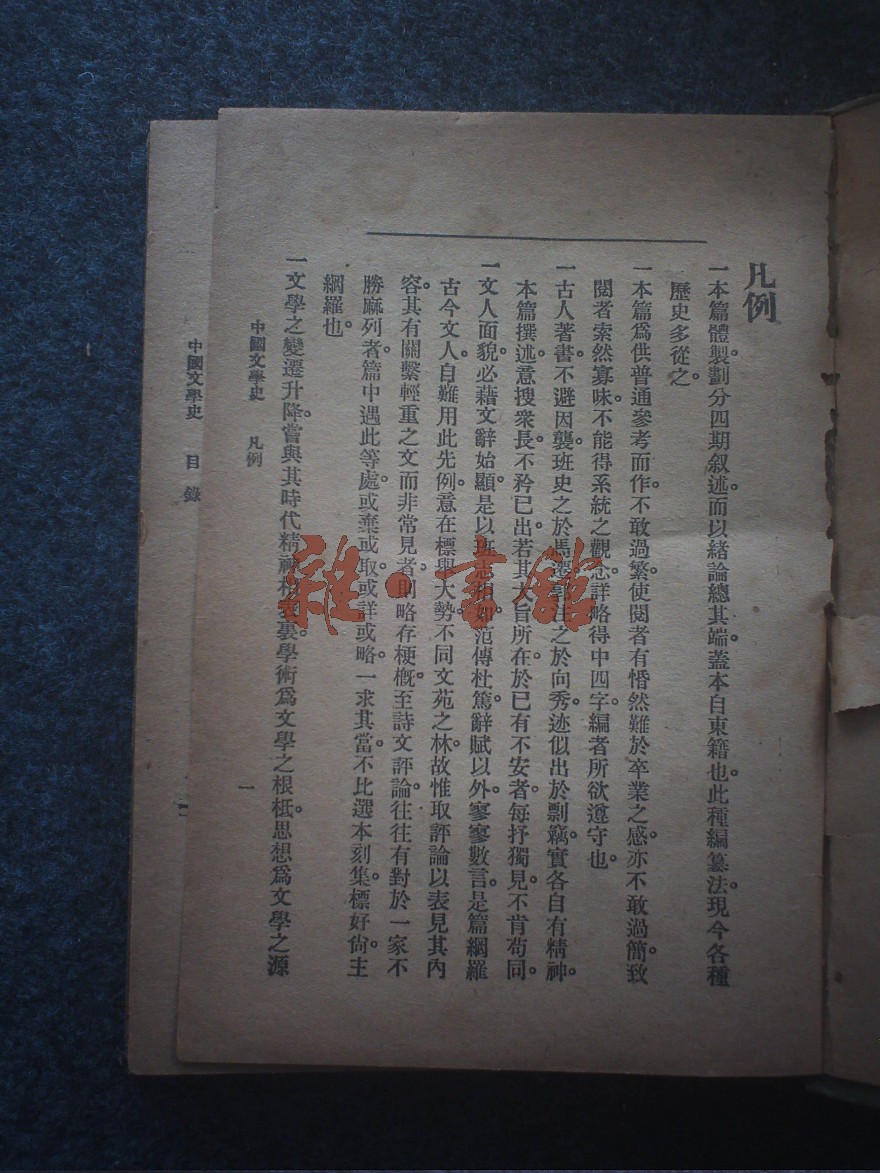 凡例
一本篇體製。劃分四期叙述。而以緒論總其端。蓋本自東籍也。此種編纂法。現今各種
歷史多從之。
一本篇爲供普通參考而作。不敢過繁。使閱者有惛然難於卒業之感。亦不敢過簡。致
閱者索然寡味。不能得系統之觀念。詳略得中四字。編者所欲遵守也。
一古人著書。不避因襲。班史之於馬遷。郭注之於向秀。迹似出於剽竊。實各自有精神。
本篇撰述。意搜衆長。不矜已出。若其大旨所在。於已有不安者。每抒獨見。不肯苟同。
一文人面貌。必藉文辭始顯。是以班志相如。范傳杜篤。辭賦以外。寥寥數言。是篇網羅
古今文人。自難用此先例。意在標舉大勢。不同文苑之林。故惟取評論以表見其內
容。其有關繫輕重之文而非常見者。則略存梗槪。至詩文評論。往往有對於一家不
勝麻列者。篇中遇此等處。或棄或取。或詳或略。一求其當。不比選本刻集。標好尙。主
網羅也。
一文學之變遷升降。嘗與其時代精神相表裏。學術爲文學之根柢。思想爲文學之源
中國文學史 凡例
一
中國文學史 目錄
雜·書館